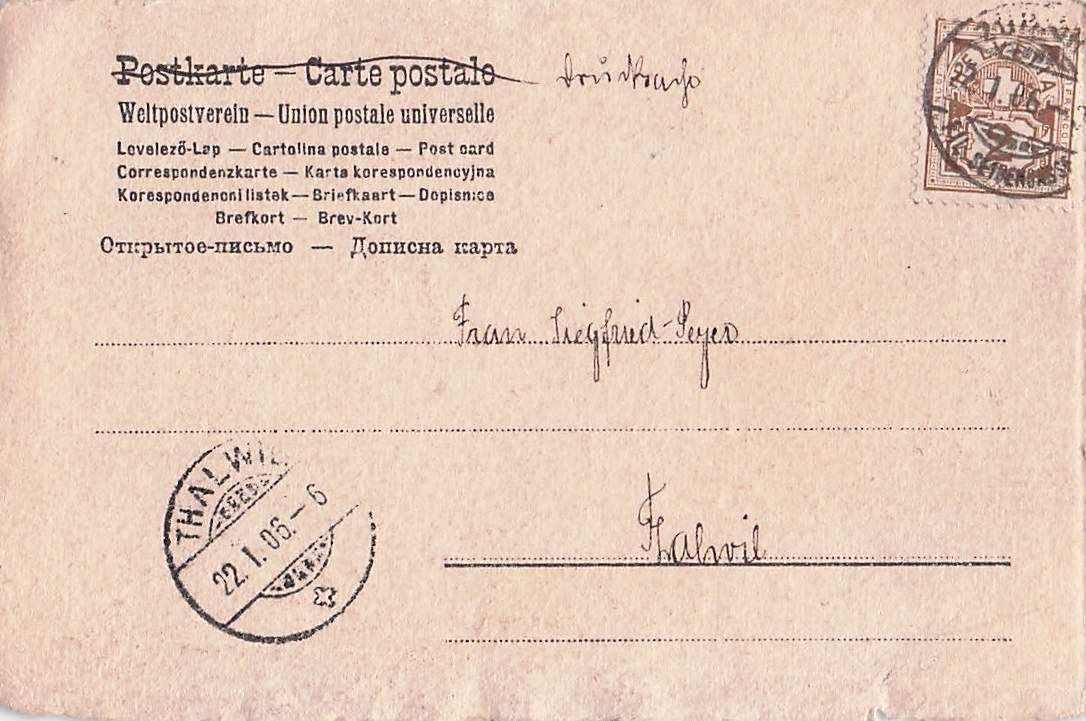 Postkarte — Carte postale Drucksache
Weltpostverein — Union postale universelle
Levelező-Lap — Cartolina postale — Post card
Correspondenzkarte — Karta korespondencyjna
Korespondenční listek — Briefkaart — Dopisnica
Brefkort — Brev-Kort
Открытое-письмо — Дописна карта
22. I. 06.
2
Frau Siegfried-Peyer
THALWIL
22. I. 06. - 6
Thalwil